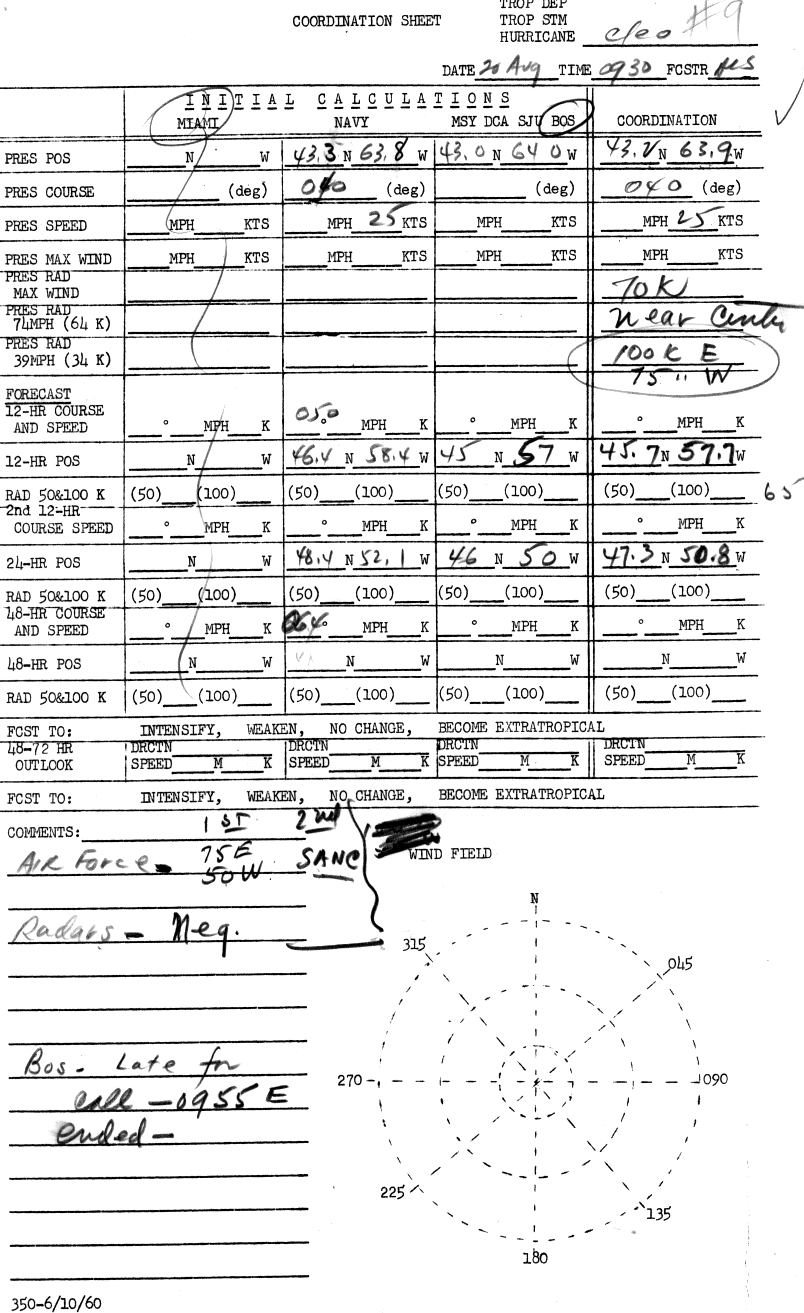 TROP DEP
COORDINATION SHEET TROP STM
HURRICANE Cleo #9
DATE 20 Aug TIME 0930 FCSTR
INITIAL CALCULATIONS
MIAMI NAVY MSY DCA SJU BOS COORDINATION
PRES POS N W 43.3 N 63.8 W 43.0 N 64 0 W 43.2 N 63.9 W
PRES COURSE (deg) 040 (deg) (deg) 040 (deg)
PRES SPEED MPH KTS MPH 25 KTS MPH KTS MPH 25 KTS
PRES MAX WIND MPH KTS MPH KTS MPH KTS MPH KTS
PRES RAD
MAX WIND 70K
PRES RAD near Center
74MPH (64 K)
PRES RAD
39MPH (34 K) 100 K E
75 " W
FORECAST
12-HR COURSE 050
AND SPEED ° MPH K ° MPH K ° MPH K ° MPH K
12-HR POS N W 46.4 N 58.4 W 45 N 57 W 45.7 N 57.7 W
RAD 50&100 K (50) (100) (50) (100) (50) (100) (50) (100) 65
2nd 12-HR
COURSE SPEED ° MPH K ° MPH K ° MPH K ° MPH K
24-HR POS N W 48.4 N 52.1 W 46 N 50 W 47.3 N 50.8 W
RAD 50&100 K (50) (100) (50) (100) (50) (100) (50) (100)
48-HR COURSE
AND SPEED ° MPH K 064° MPH K ° MPH K ° MPH K
48-HR POS N W N W N W N W
RAD 50&100 K (50) (100) (50) (100) (50) (100) (50) (100)
FCST TO: INTENSIFY, WEAKEN, NO CHANGE, BECOME EXTRATROPICAL
48-72 HR DRCTN DRCTN DRCTN DRCTN
OUTLOOK SPEED M K SPEED M K SPEED M K SPEED M K
FCST TO: INTENSIFY, WEAKEN, NO CHANGE, BECOME EXTRATROPICAL
COMMENTS: 1ST 2nd
AIR Force - 75E SANC WIND FIELD
50W
Radars - Neg.
N
315 045
Bos - Late for
270 090
call - 0955 E
ended -
225 135
180
350-6/10/60